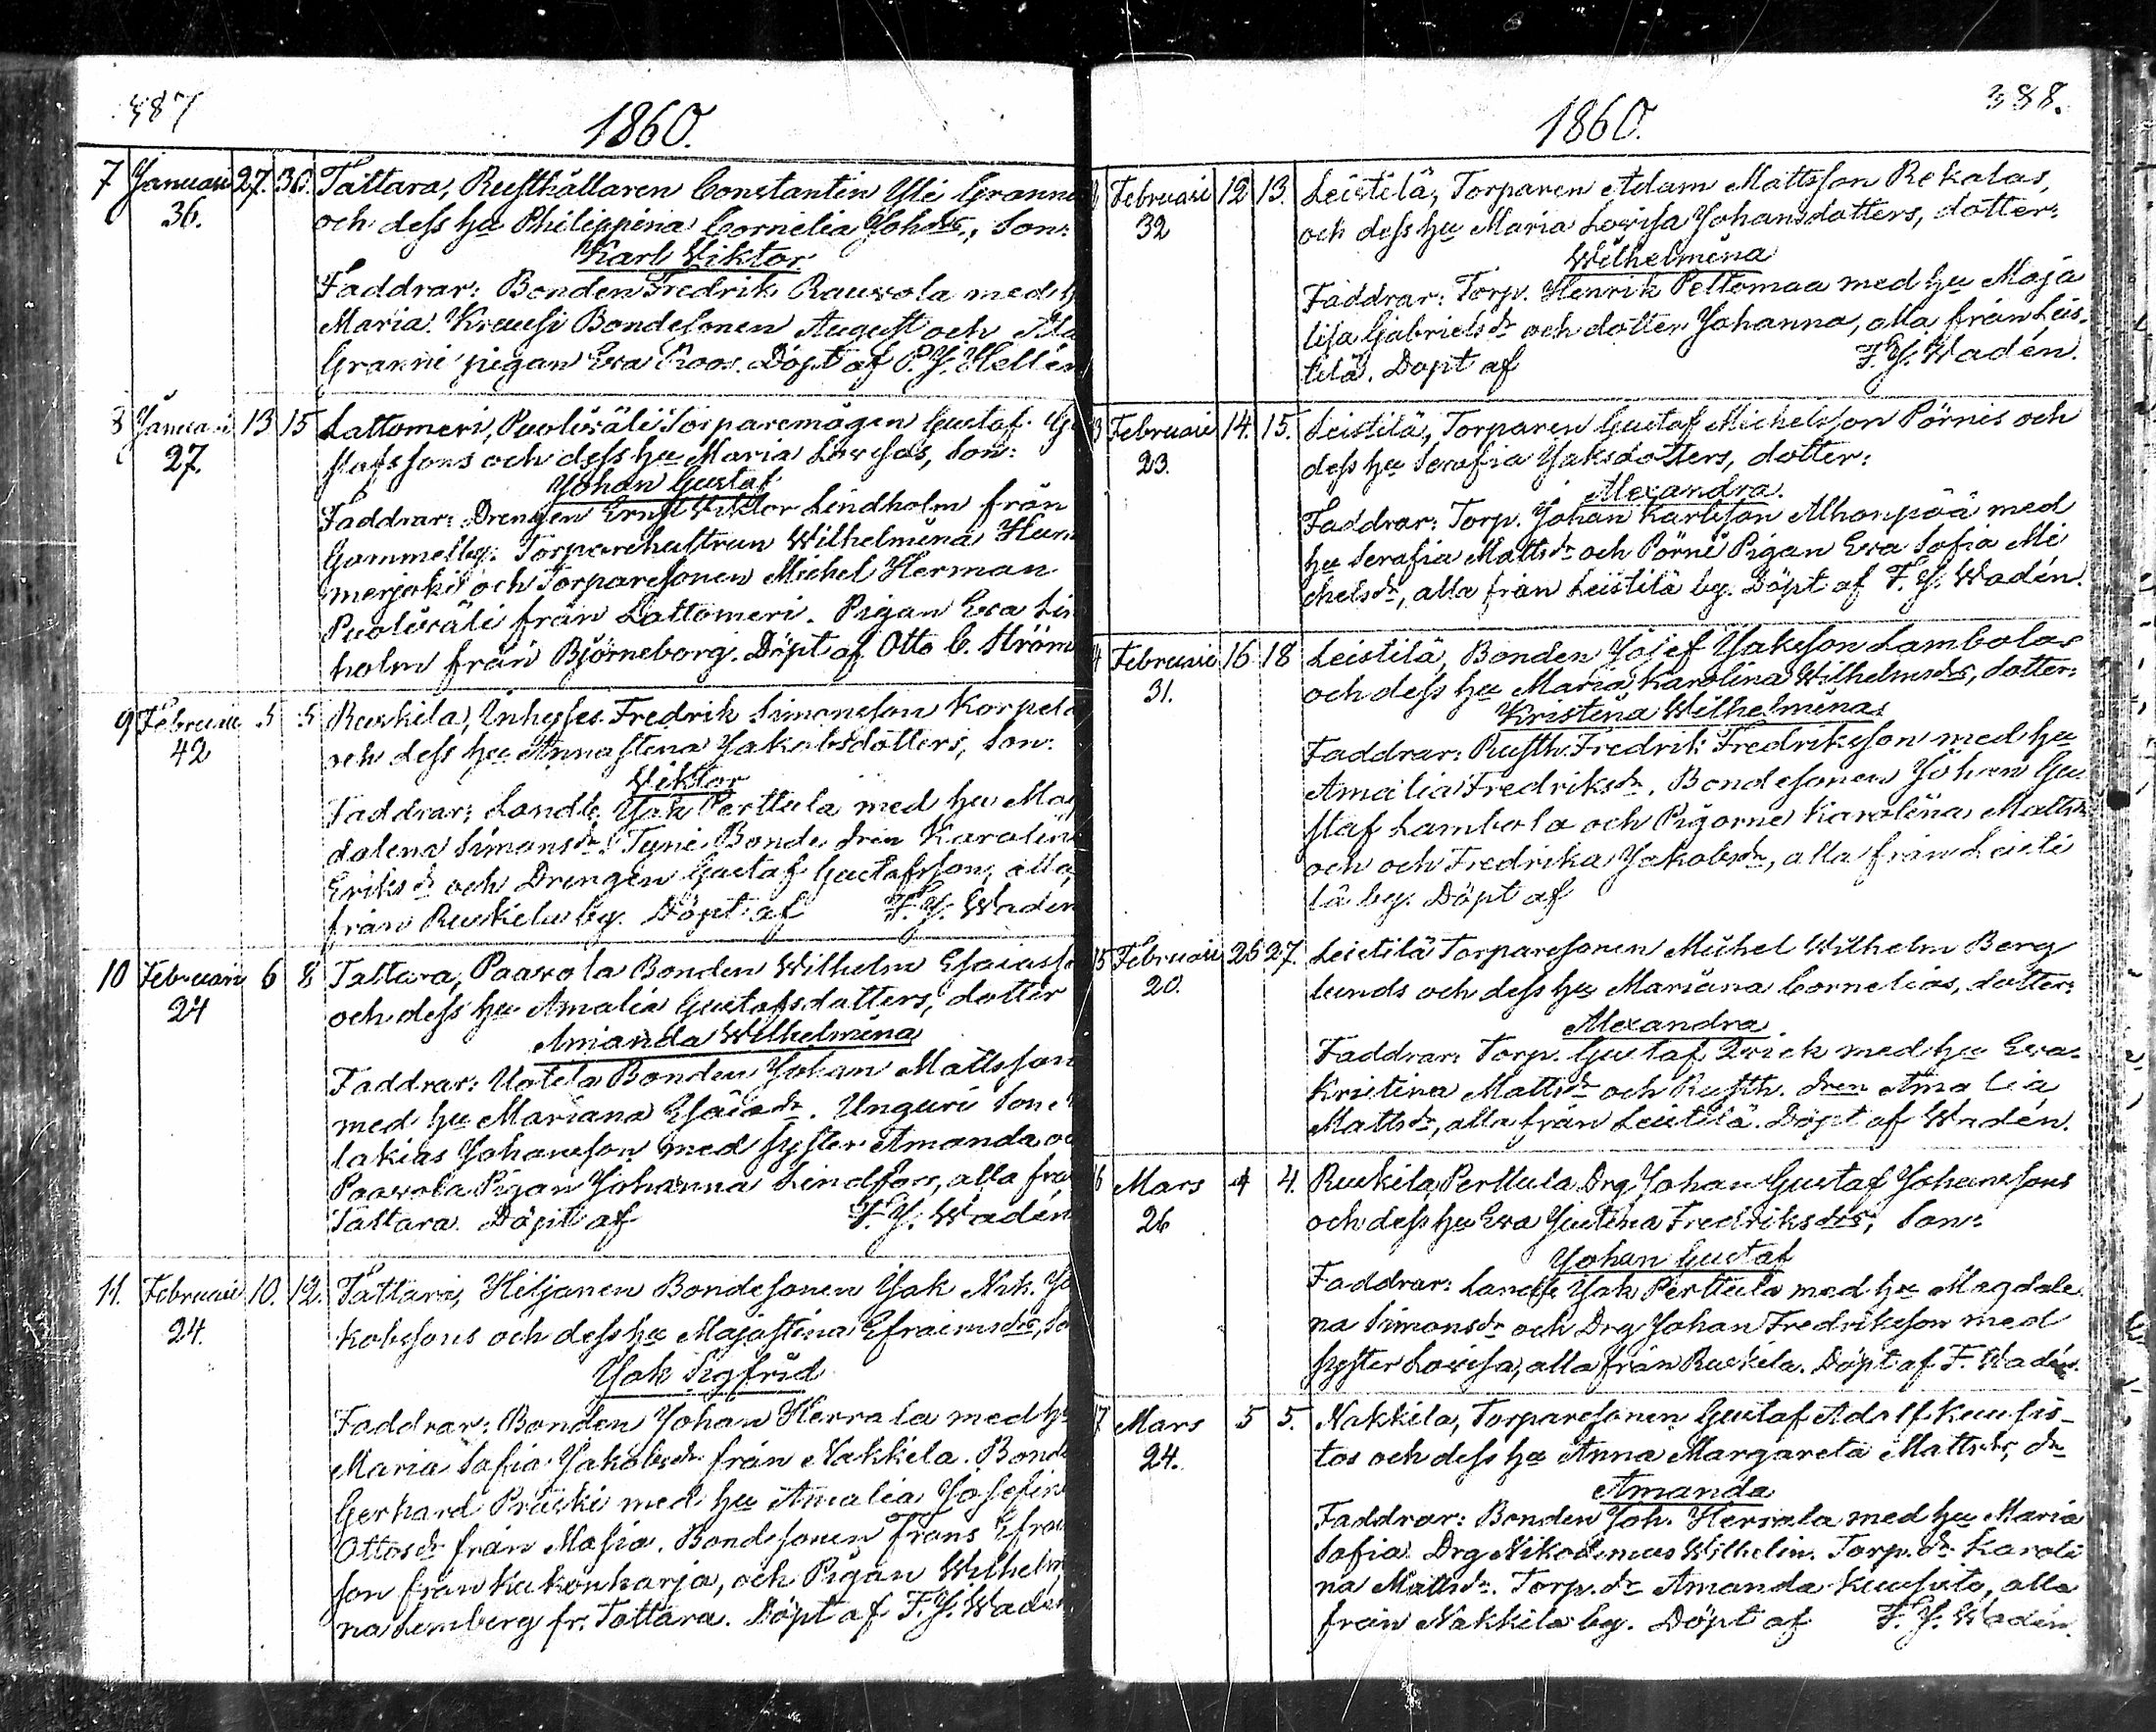 387
1860.
7 Januari 27. 30. Tattara, Rusthållaren Constantin Yli Granni
36. och dess hu Philippina Cornelia Johds., Son:
Karl Viktor
Faddrar: Bonden Fredrik Rauvola med h
Maria. Krausi Bondesonen August och
Granni pigan Eva Roos. Döpt af P. J. Hellén
8 Januari 13 15 Lattomeri, Puoliväli Torparemågen Gustaf Gu
27. stafssons och dess hu Maria Lovisas, Son:
Johan Gustaf
Faddrar: Drengen Ernst Viktor Lindholm från
Gammelby. Torparehustrun Wilhelmina Hum
merjoki och Torparesonen Michel Herman
Puoliväli från Lattomeri. Pigan Eva Lin
holm från Björneborg. Döpt af Otto C. Ström
9 Februari 5 5 Ruskila, Inhyses Fredrik Simonsson Korpela
42 och dess hu Annastina Jakobsdotters, Son:
Viktor
Faddrar: Landb. Jak Perttula med hu Mag
dalena Simonsdr. Tyni Bonde dren Karolin
Eriksdr och Drengen Gustaf Gustafsson, alla
från Ruskila by. Döpt af F. J. Wadén
10 Februari 6 8 Tattara, Paavola Bonden Wilhelm Esaiass
24 och dess hu Amalia Gustafsdotters, dotter
Amanda Wilhelmina
Faddrar: Uotila Bonden Johan Mattsson
med hu Mariana Esaiedr. Unguri Son
lakias Johansson med syster Amanda oc
Paavola Pigan Johanna Lindfors, alla frå
Tattara. Döpt af F. J. Wadén
11. Februari 10. 12. Tattara, Hiljanen Bondesonen Jak Nik. Ja
24. kobssons och dess hu Majastina Efraimsdrs, So
Jak Sigfrid
Faddrar: Bonden Johan Herrala med hu
Maria Sofia Jakobsdr från Nakkila. Bond
Gerhard Pruski med hu Amalia Josefin
Ottosdr från Masia. Bondesonen Frans Efra
son från Kukonharja, och Pigan Wilhelm
na Lemberg fr. Tattara. Döpt af F. J. Wadén
388.
1860.
Februari 12 13. Leistilä, Torparen Adam Mattsson Rekolas,
32 och dess hu Maria Lovisa Johansdotters, dotter:
Wilhelmina
Faddrar: Torp. Henrik Peltomaa med hu Maja
lisa Gabrielsdr och dotter Johanna, alla från Leis-
tilä. Döpt af F. J. Wadén.
3 Februari 14. 15. Leistilä, Torparen Gustaf Michelsson Pörnis och
23. dess hu Serafia Jaksdotters, dotter:
Alexandra.
Faddrar: Torp. Johan Karlsson Alhonpää med
hu Serafia Mattsdr och Pörni Pigan Eva Sofia Mi
chelsdr, alla från Leistilä by. Döpt af F. J. Wadén.
4 Februari 16 18 Leistilä, Bonden Josef Jaksson Lambolas
31. och dess hu Maria Karolina Wilhelmsdrs, dotter:
Kristina Wilhelmina
Faddrar: Rusth. Fredrik Fredriksson med hu
Amalia Fredriksdr. Bondesonen Johan Gu
staf Lambola och Pigorne Karolina Mattsdr
och och Fredrika Jakobsdr, alla från Leisti
lä by. Döpt af
15 Februari 25 27. Leistilä Torparesonen Michel Wilhelm Berg
20. lunds och dess hu Mariana Cornelias, dotter:
Alexandra
Faddrar: Torp. Gustaf Qvick med hu Eva
Kristina Mattsdr och Rusth. dren Amalia
Mattsdr, alla från Leistilä. Döpt af Wadén.
6 Mars 4 4. Ruskila, Perttula Drg Johan Gustaf Johanssons
26 och dess hu Eva Justina Fredriksdrs, Son:
Johan Gustaf
Faddrar: Landb. Jak Perttula med hu Magdale
na Simonsdr och Drg Johan Fredriksson med
syster Lovisa, alla från Ruskila. Döpt af F. Wadén.
17 Mars 5 5. Nakkila, Torparesonen Gustaf Adolf Kuusis-
24. tos och dess hu Anna Margareta Mattsdrs, dr
Amanda
Faddrar: Bonden Joh. Herrala med hu Maria
Sofia. Drg Nikodemus Wilhelm. Torp. dr Karoli
na Mattsdr. Torp. dr Amanda Kuusisto, alla
från Nakkila by. Döpt af F. J. Wadén.